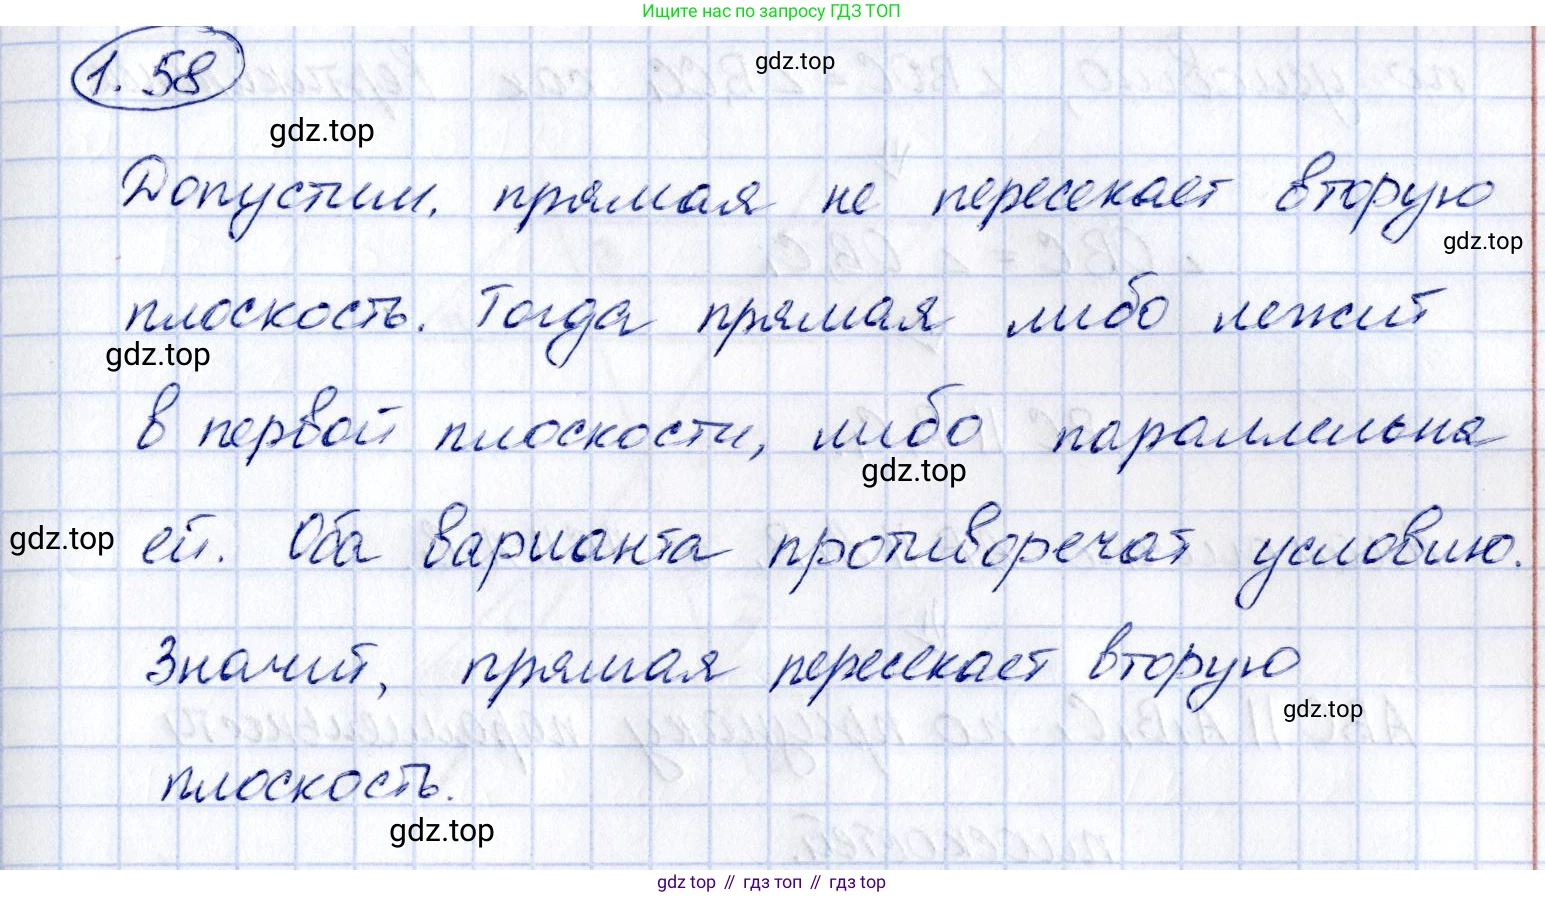 Ищите нас по запросу ГДЗ ТОП
1.58
gdz.top
gdz.top
Допустим, прямая не пересекает вторую
gdz.top
плоскость. Тогда прямая либо лежит
gdz.top
в первой плоскости, либо параллельна
gdz.top
ей. Оба варианта противоречат условию.
gdz.top
Значит, прямая пересекает вторую
gdz.top
плоскость.
gdz.top
gdz top // гдз топ // gdz top